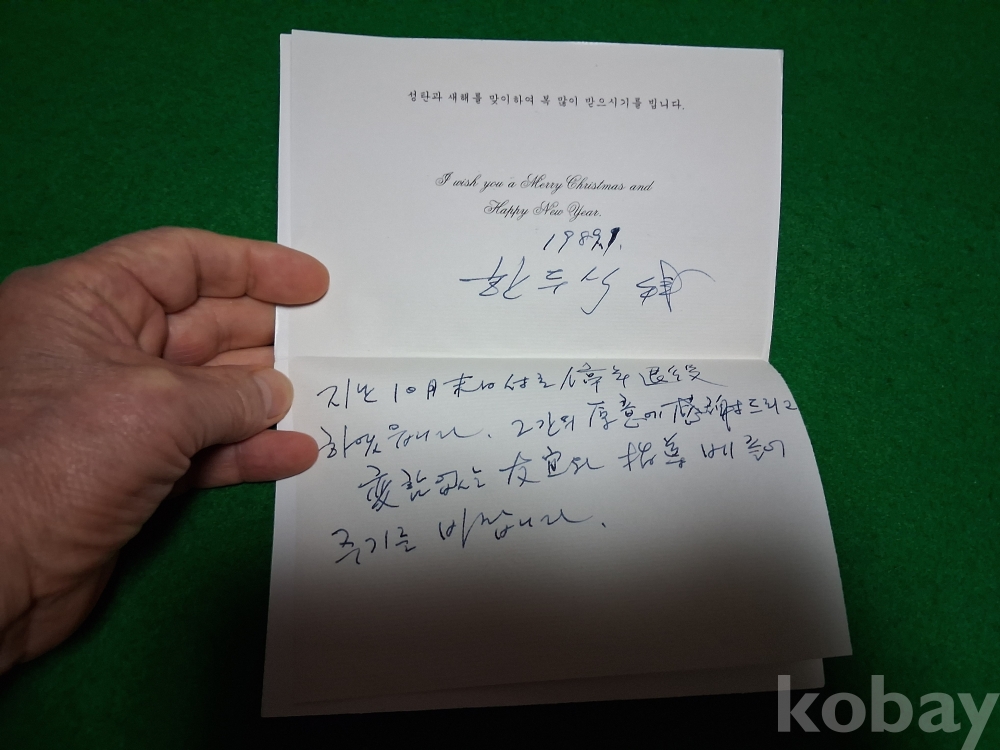 성탄과 새해를 맞이하여 복 많이 받으시기를 빕니다.
I wish you a Merry Christmas and
Happy New Year.
한두식
지난 10月末日 停年 退役
하였읍니다. 그간의 厚意에 感謝드리고
변함없는 友宜와 指導 베풀어
주기를 바랍니다.
kobay